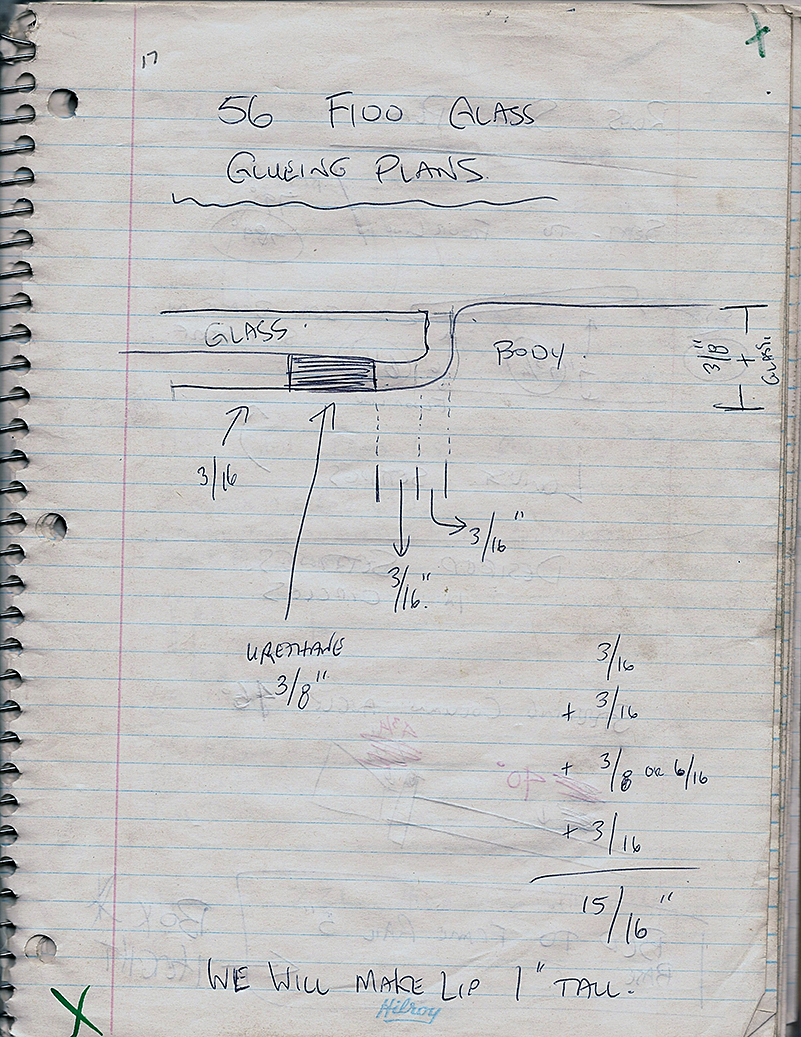 17
56 F100 GLASS
GLUEING PLANS
GLASS
BODY.
3/8" + GLASS
3/16
3/16"
3/16".
URETHANE
3/8"
3/16
+ 3/16
+ 3/8 or 6/16
+ 3/16
15/16"
WE WILL MAKE LIP 1" TALL.
Hilroy